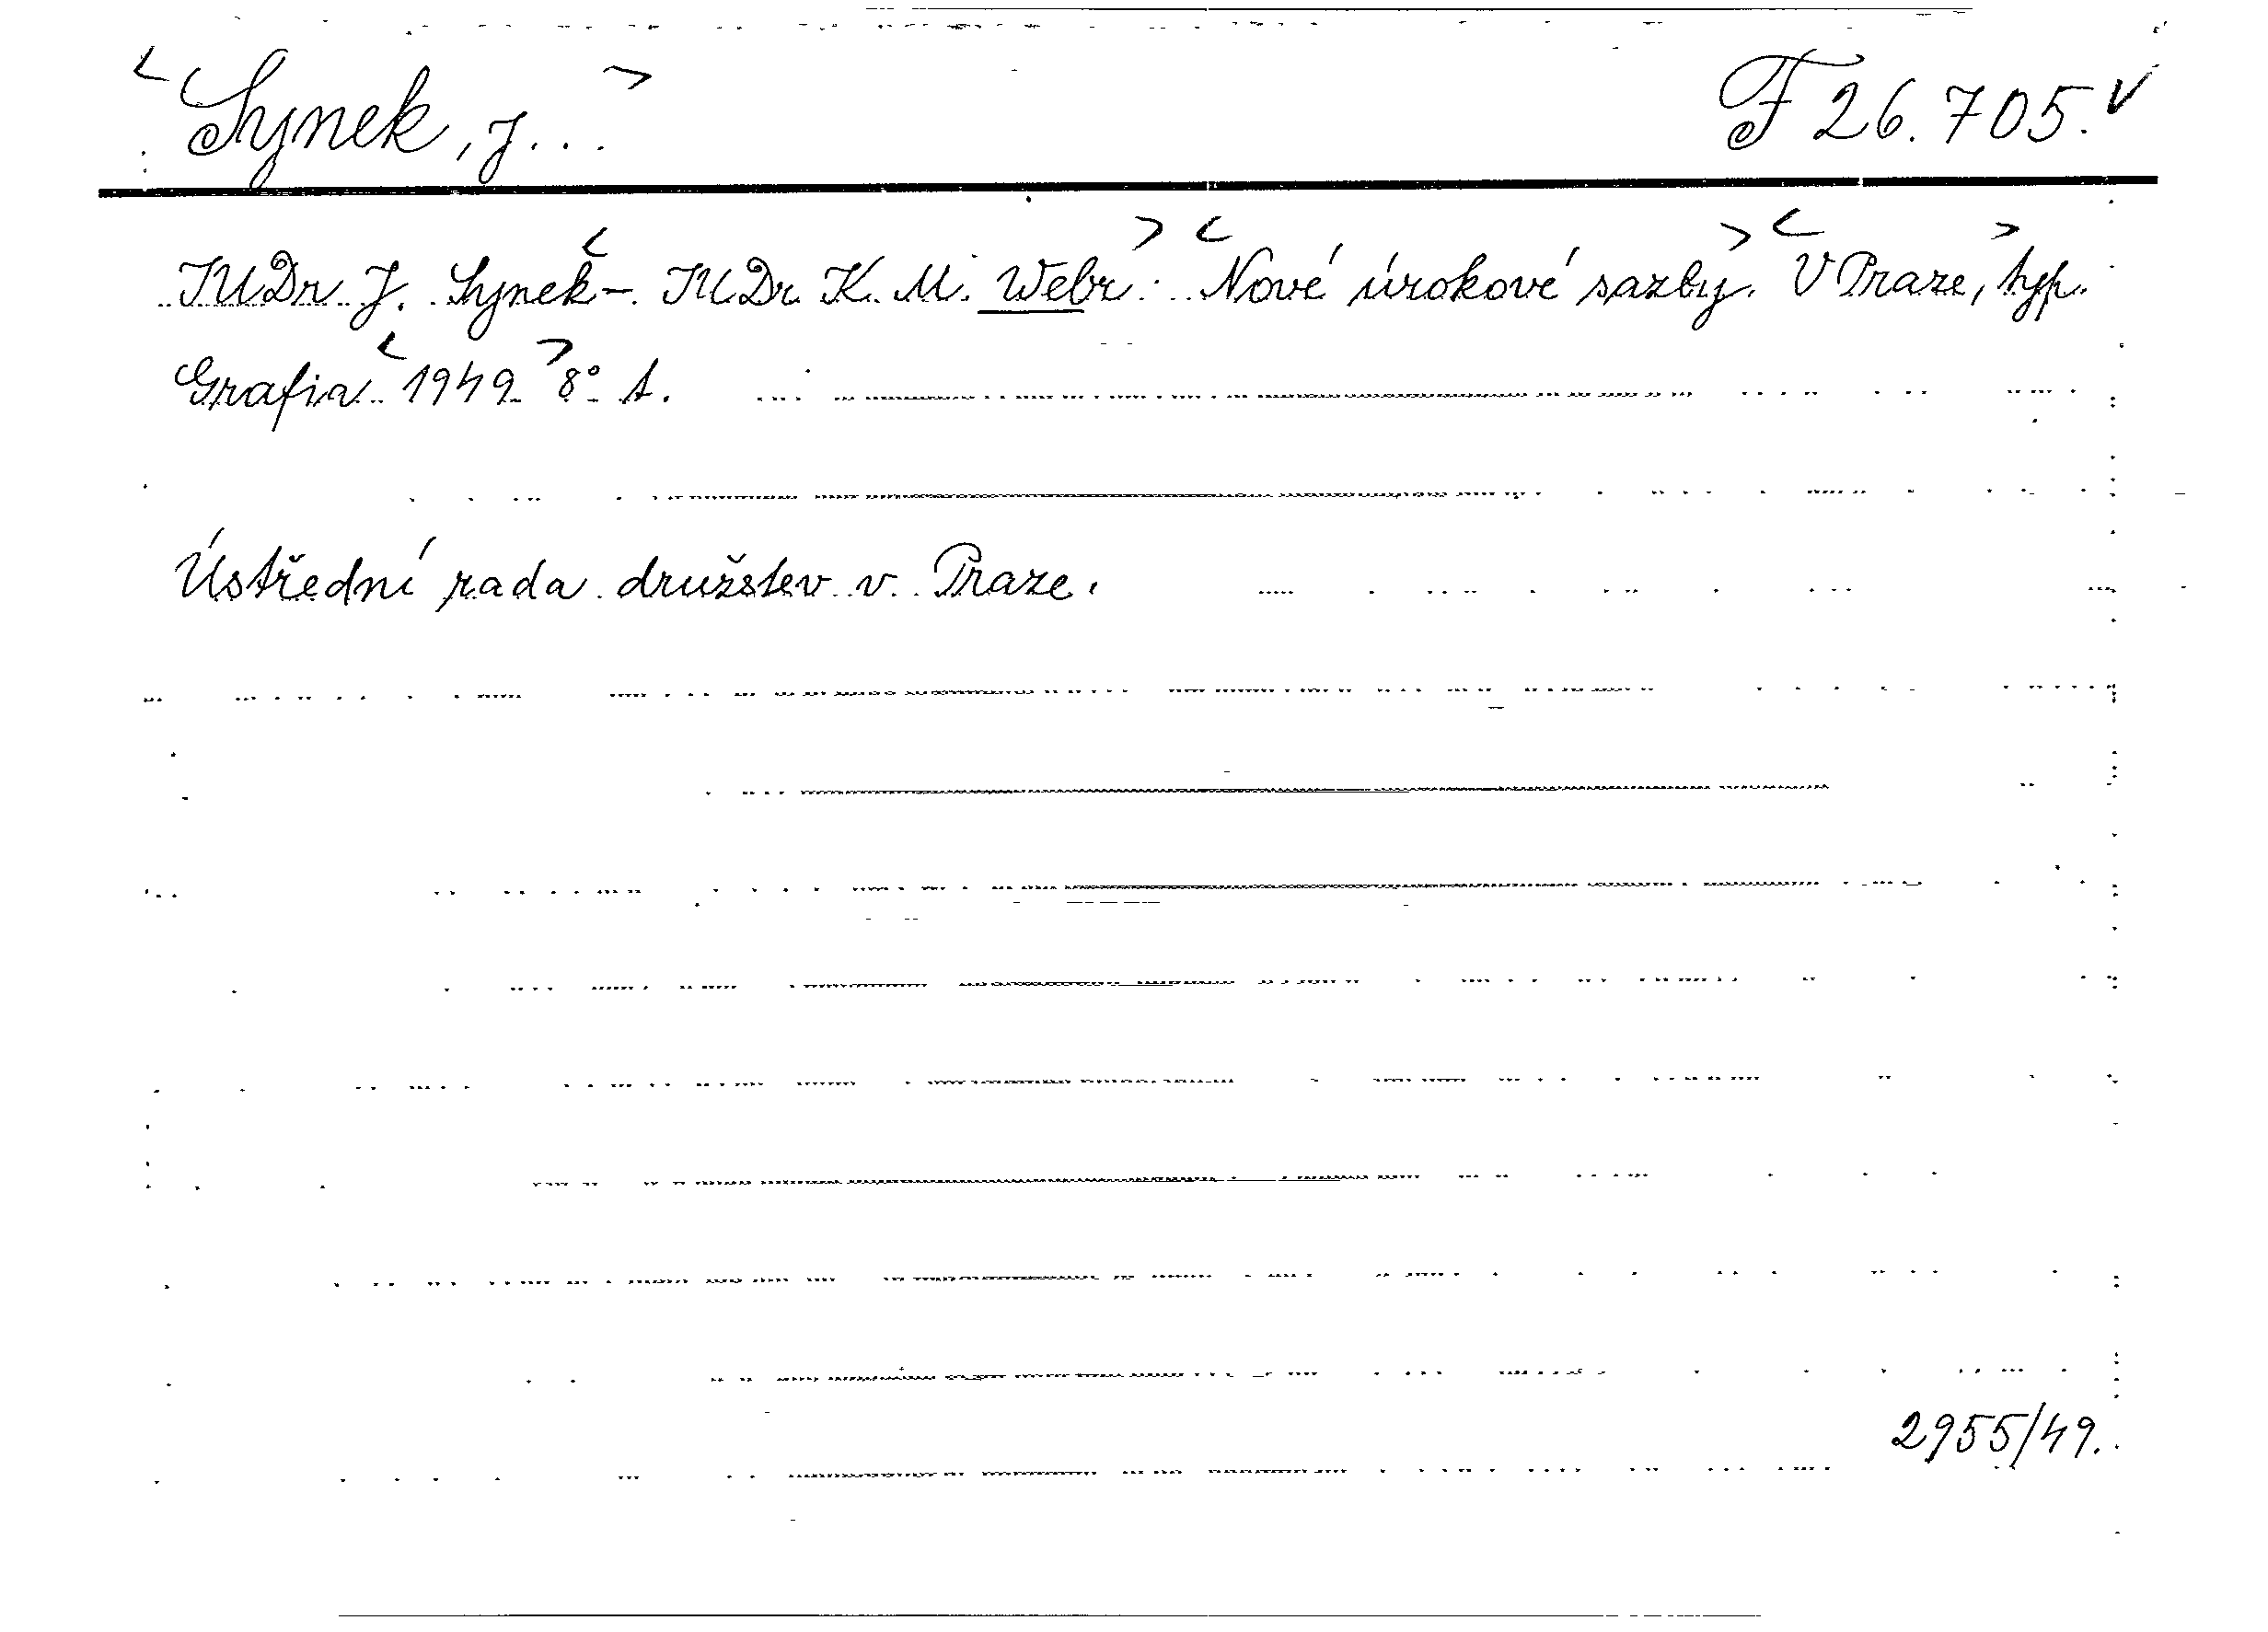 <Synek, J...> F 26.705.
JUDr. J. Synek<-. JUDr. K. M. Webr:> <Nové úrokové sazby.> <V Praze,> typ.
Grafia <1949> 8° s.
Ústřední rada družstev v Praze.
2955/49.